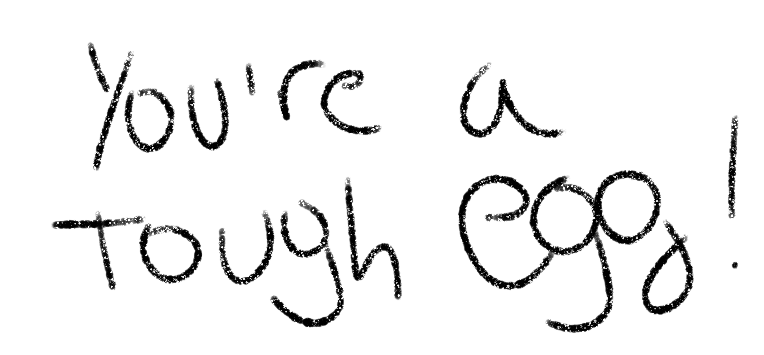 You're a
tough egg!